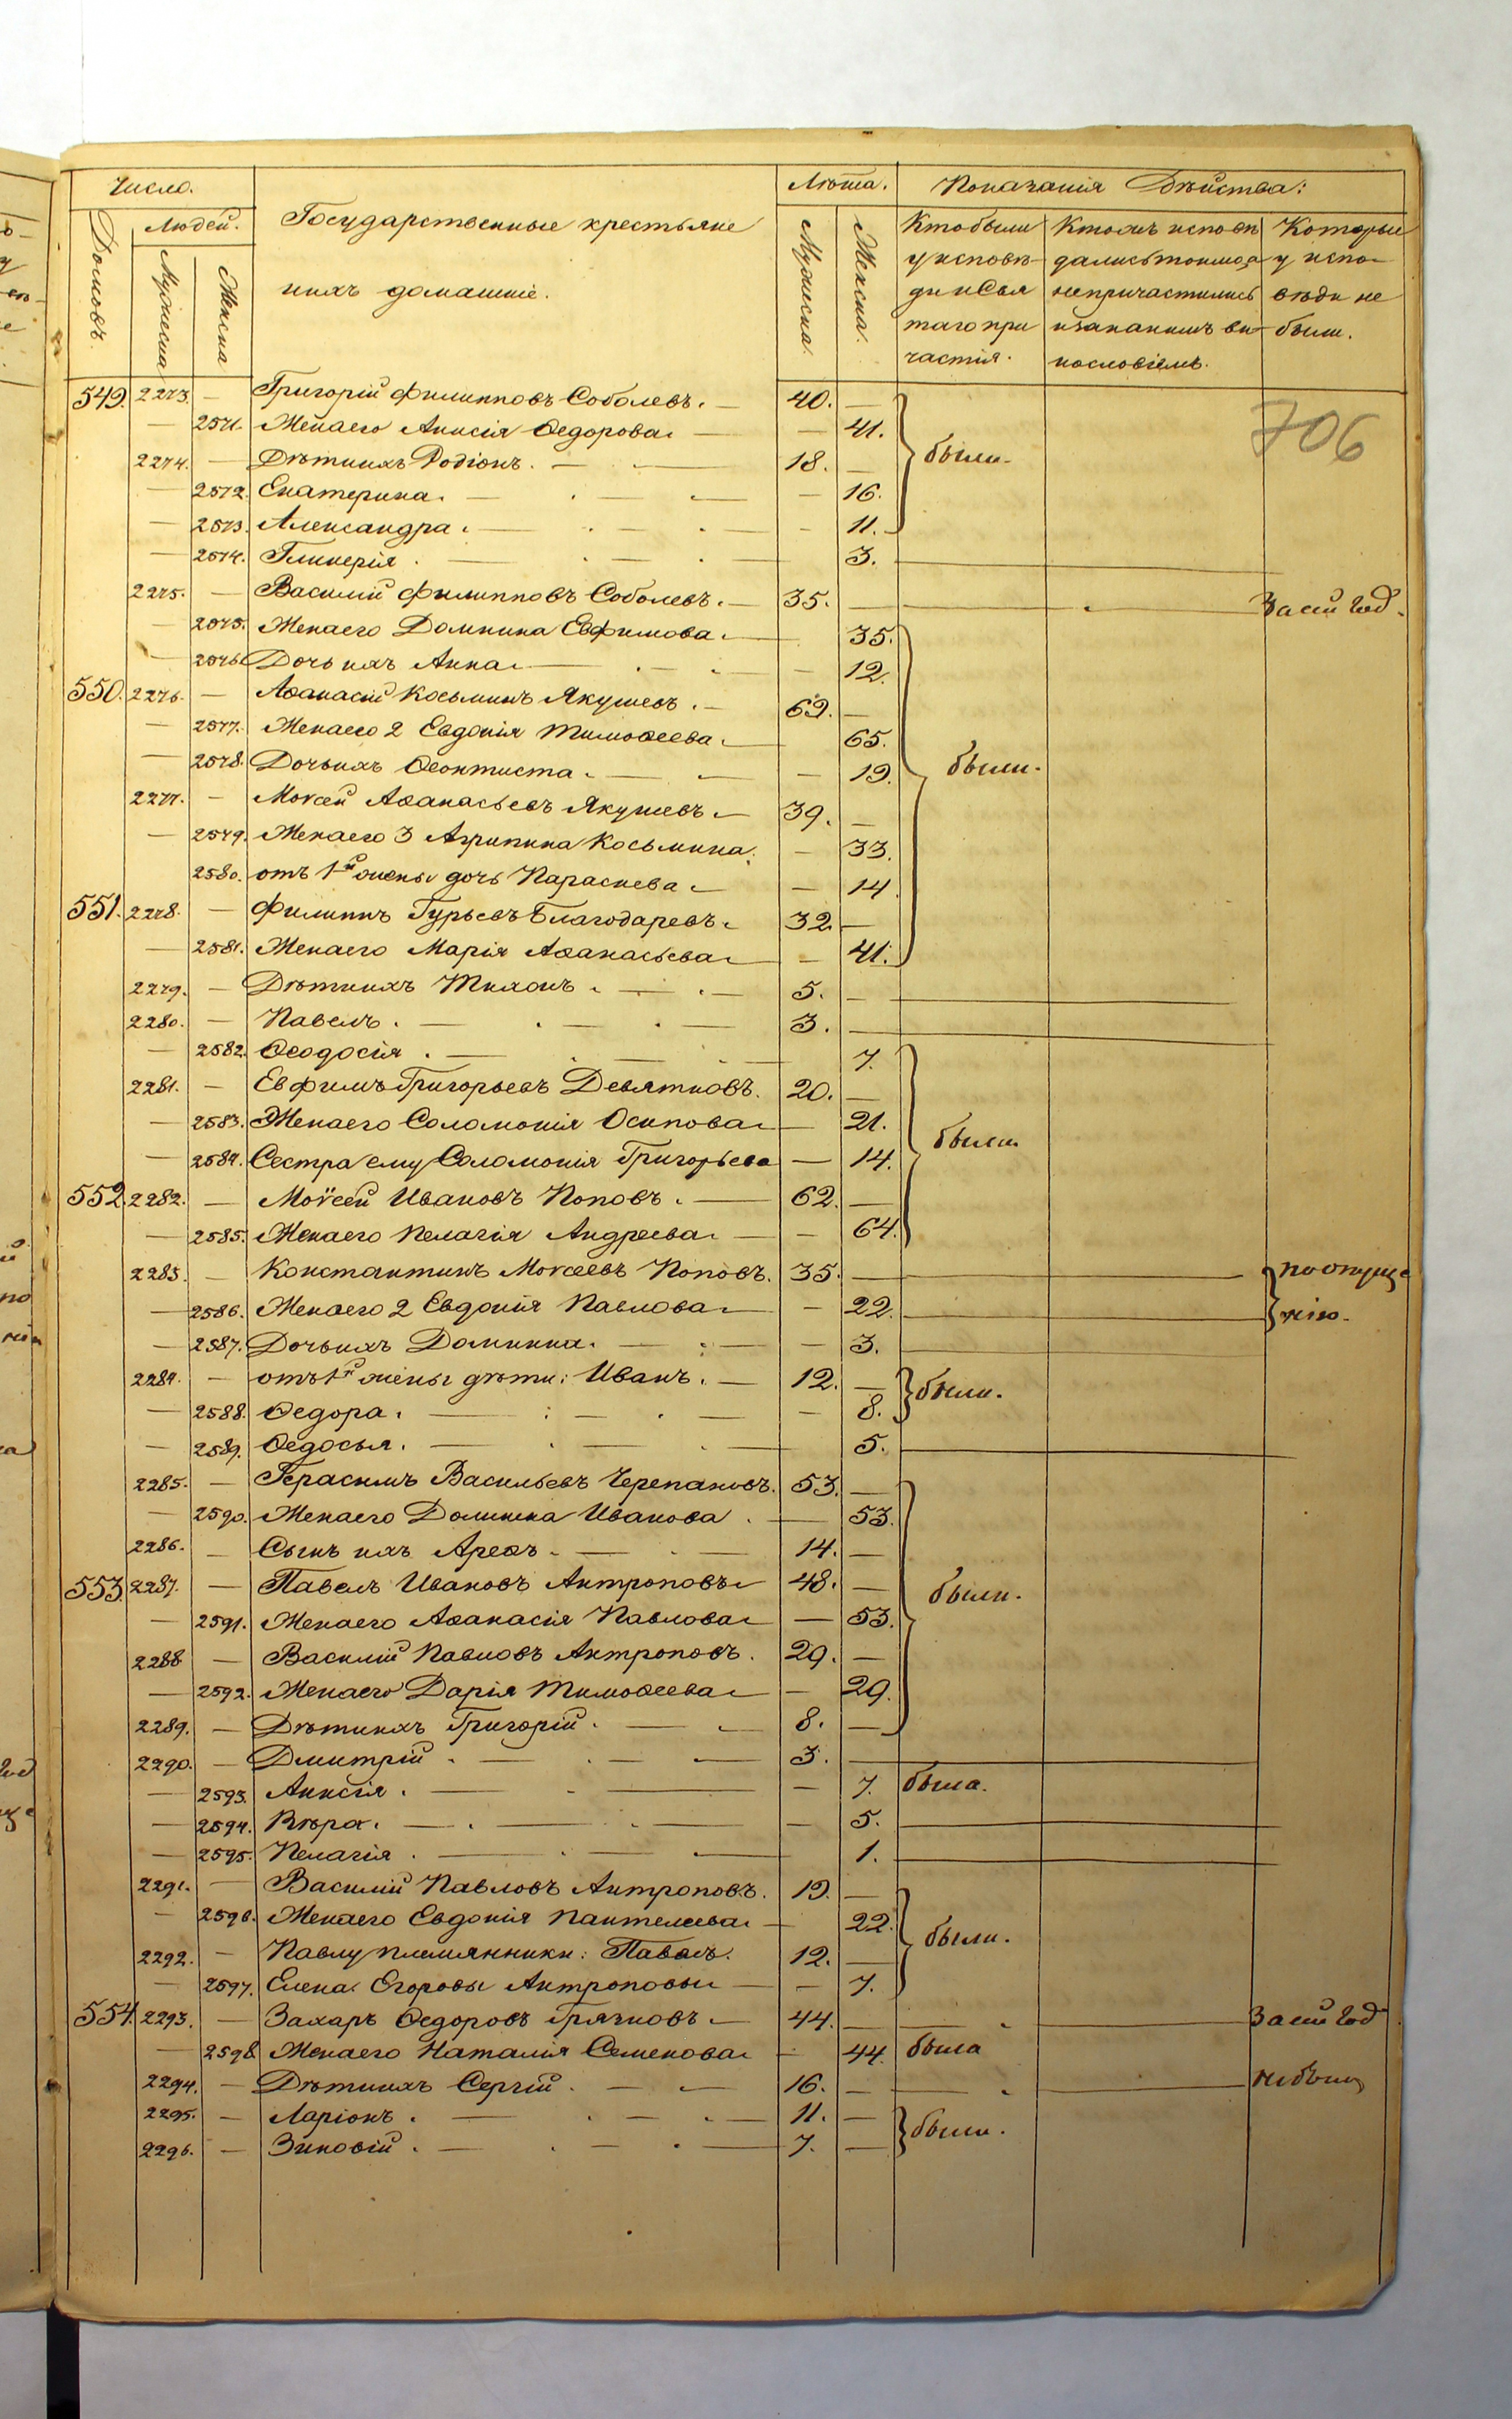 Число. Лѣта. Показанія Дѣйства:
Домовъ. Людей. Мужеска Женска
Государственные крестьяне
ихъ домашніе.
Мужеска. Женска.
Кто были у исповѣди и Святаго причастія.
Которы у исповѣди не были.
706
549. 2273. — Григорій Филипповъ Соболевъ. — 40. —
— 2571. Жена его Анисія Ѳедорова — — 41.
2274. — Дѣти ихъ Родіонъ. — 18. — были.
— 2572. Екатерина. — — 16.
— 2573. Александра. — — 11.
— 2574. Гликерія. — 3.
2275. — Василій Филипповъ Соболевъ. — 35. — За сей год.
— 2575. Жена его Домнина Евфимова. — 35.
— 2576. Дочь ихъ Анна — — 12.
550. 2276. — Аѳанасій Косьминъ Якушевъ. — 69. —
— 2577. Жена его 2 Евдокія Тимоѳеева. — 65.
— 2578. Дочь ихъ Ѳеоктиста. — — 19. были.
2277. — Моѵсей Аѳанасьевъ Якушевъ — 39. —
— 2579. Жена его 3 Агрипина Косьмина. — 33.
2580. отъ 1й жены дочь Параскева — — 14.
551. 2278. — Филиппъ Гурьевъ Благодаревъ. 32. —
— 2581. Жена его Марія Аѳанасьева — — 41.
2279. — Дѣти ихъ Тихонъ. — 5. —
2280. — Павелъ. — 3. —
— 2582. Ѳеодосія. — 7.
2281. — Евфимъ Григорьевъ Девятковъ. 20. —
— 2583. Жена его Соломонія Осипова — 21. были
— 2584. Сестра ему Соломонія Григорьева — 14.
552. 2282. — Моѵсей Ивановъ Поповъ. — 62. —
— 2585. Жена его Пелагія Андреева. — — 64.
2283. — Константинъ Моѵсеевъ Поповъ. 35. — по опуще
— 2586. Жена его 2 Евдокія Павлова — — 22. — нію.
— 2587. Дочь ихъ Домнина. — — 3.
2284. — отъ 1й жены дѣти: Иванъ. — 12. — были.
— 2588. Ѳедора. — — 8.
— 2589. Ѳедосья. — 5.
2285. — Герасимъ Васильевъ Черепановъ. 53. —
— 2590. Жена его Домнина Иванова. — 53.
2286. — Сынъ ихъ Ареѳъ. — 14. —
553. 2287. — Павелъ Ивановъ Антроповъ 48. — были.
— 2591. Жена его Аѳанасія Павлова — 53.
2288 — Василій Павловъ Антроповъ. 29. —
— 2592. Жена его Дарія Тимоѳеева — — 29.
2289. — Дѣти ихъ Григорій. — 8. —
2290. — Дмитрій. — 3. —
— 2593. Анисія. — — 7. была.
— 2594. Вѣра. — — 5.
— 2595. Пелагія. — 1.
2291. — Василій Павловъ Антроповъ. 19. —
— 2596. Жена его Евдокія Пантелеева — 22. были.
2292. — Павлу племянники: Павелъ. 12. —
— 2597. Елена Егоровы Антроповы — — 7.
554. 2293. — Захаръ Ѳедоровъ Грячковъ. — 44. — За сей год
— 2598. Жена его Наталія Семенова — 44. была
2294. — Дѣти ихъ Сергій. — 16. — не былъ
2295. — Ларіонъ. — 11. — были.
2296. — Зиновій. — 7. —